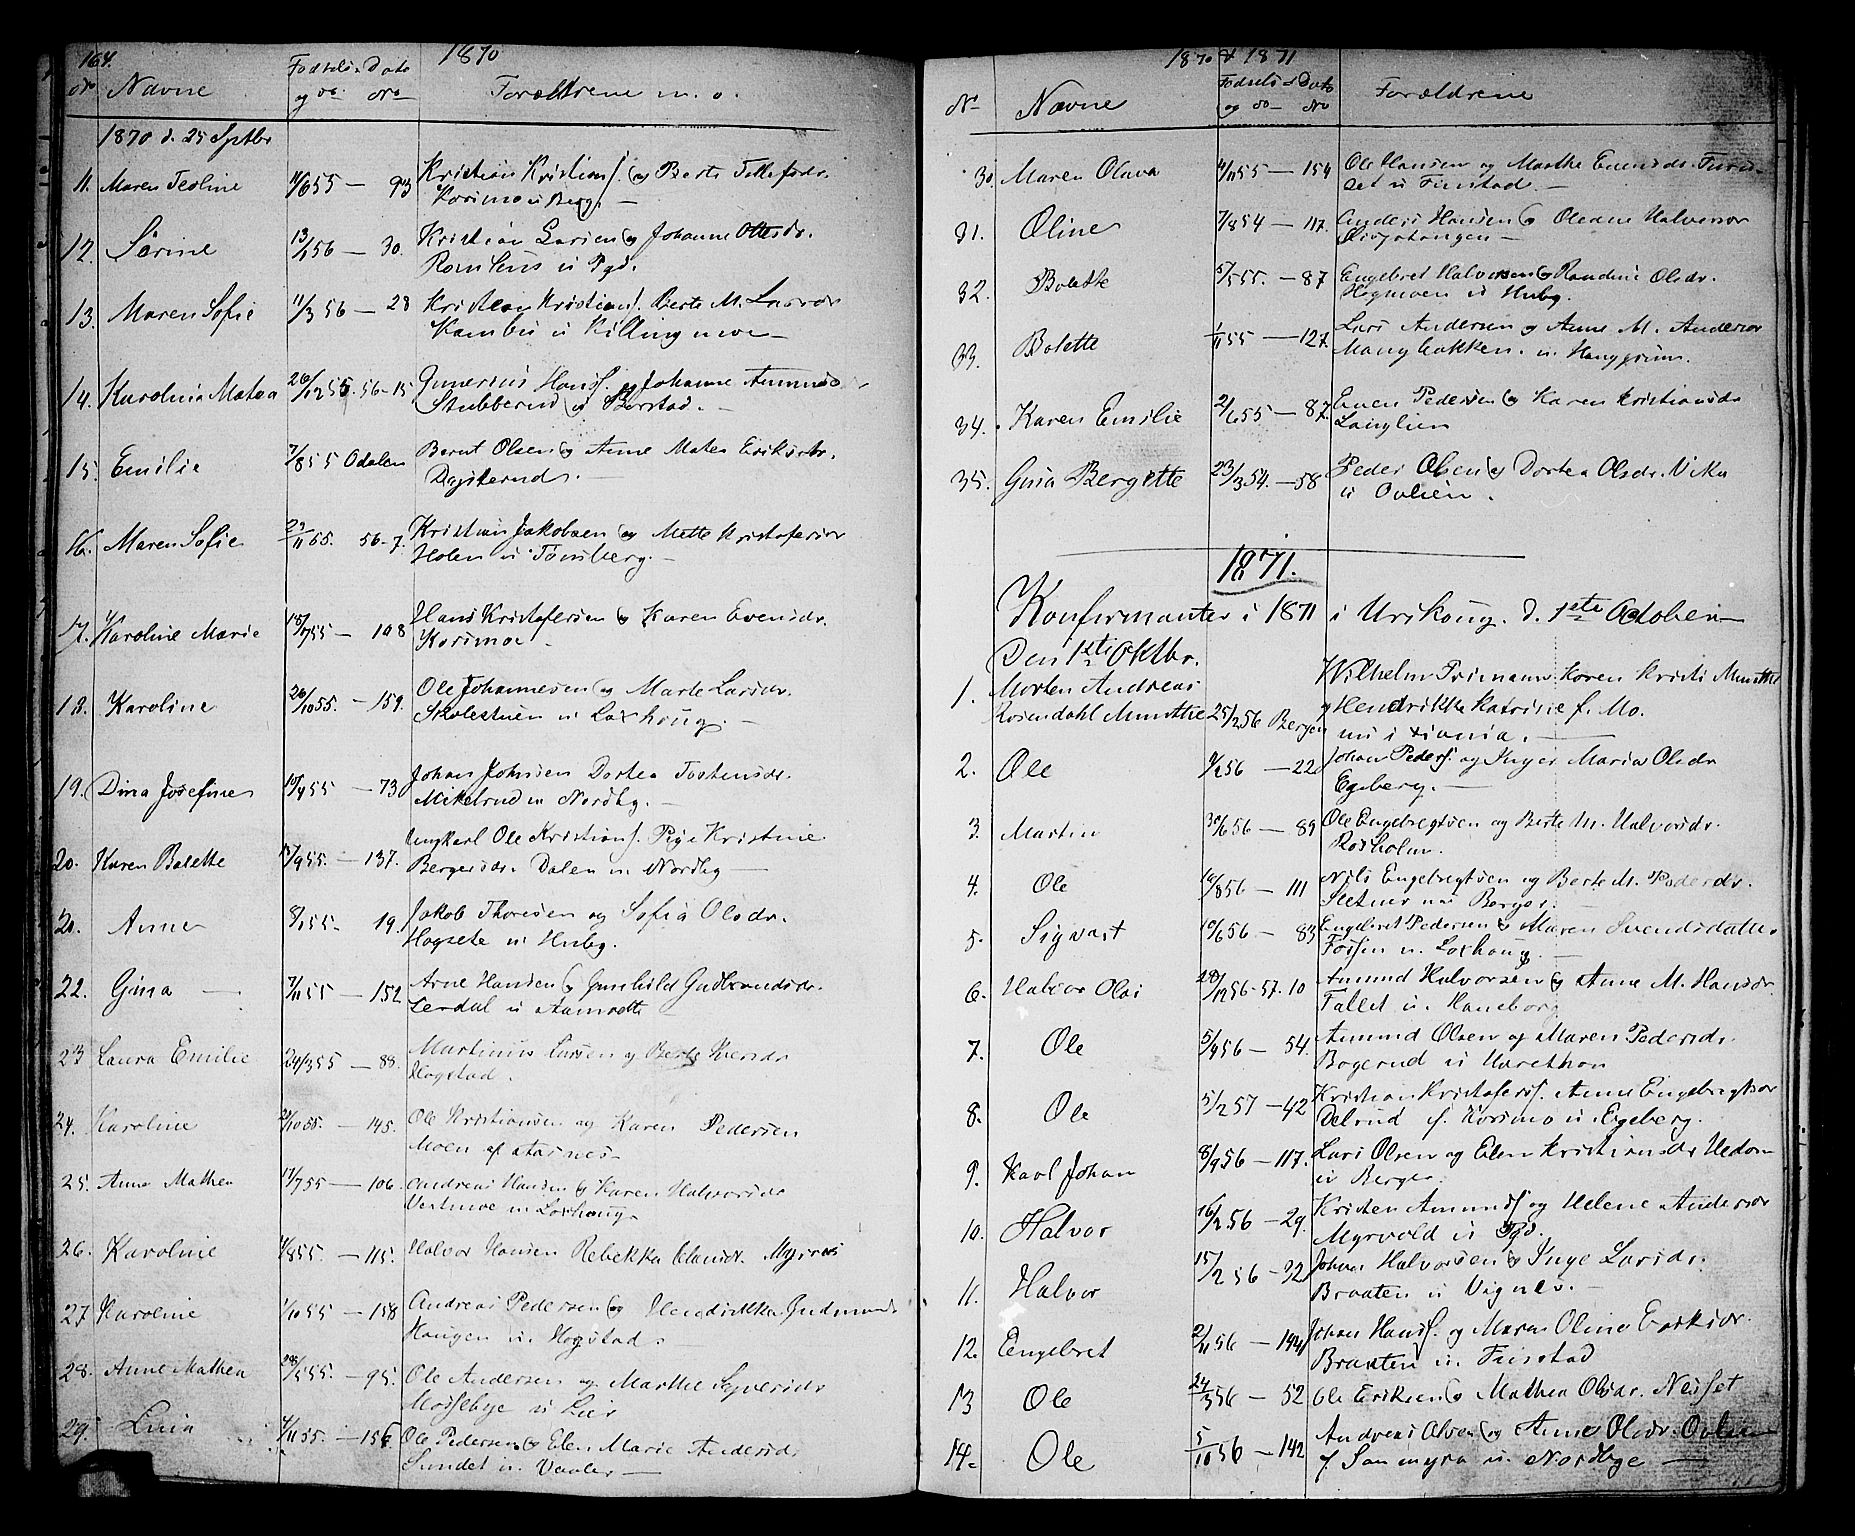 164. 1870
No Navne Fødsels Dato og do No Forældrene m. o.
1870 d. 25 Septbr
11. Maren Teoline 11/6 55 — 93 Kristian Kristians. og Berte Tollefsdr.
Korsmo u Berg. —
12. Sørine 13/1 56 — 30. Kristian Larsen og Johanne Ottersdr.
u Pgd.
13. Maren Sofie 11/3 56 — 28 Kristian Kristians. Berte M. Larsdr
u Killingmoe —
14. Karolina Matea 26/12 55. 56-15 Gunerius Hanss. og Johanne Amunds
Stubberud u Rørstad. —
15. Emilie 7/8 55 Odalen Bernt Olsen og Anne Matea Eriksdr.
—
16. Maren Sofie 29/11 55. 56-7. Kristian Jakobsen og Mette Kristofersdr
Holen u Tønsberg. —
17. Karoline Marie 15/7 55 — 108 Hans Kristofersen og Karen Evensdr.
Korsmoe —
18. Karoline 26/10 55. — 159. Ole Johannesen og Marte Larsdr.
Skolestuen u Loxhoug. —
19. Dina Josefine 10/4 55 — 73 Johan Johnsen Dortea Tostensdr.
Mikelrud u Nordby. —
20. Karen Bolette 17/9 55. — 137. Ungkarl Ole Kristians. Pige Kristine
Bergersdr. Dalen u. Nordby —
20. Anne 8/1 55 — 19. Jakob Thoresen og Sofia Olsdr.
Hogsete u Huby.
22. Gina — 7/11 55 — 152 Arne Hansen og Gunhild Gudbrandsdr.
Lerdal u Aamodt
23 Laura Emilie 24/3 55 — 88. Martinus Larsen og Berte
Hogstad.
24. Karoline 2/10 55. — 145. Ole Kristiansen og Karen Pedersen
Moen af Aarnes —
25. Anne Mathea 17/7 55 — 106. Andreas Hansen og Karen Halvorsdr
Vestmoe u Loxhoug
26. Karoline 1/8 55 — 115. Halvor Hansen Rebekka Olausdr. Myrvas
27 Karoline 1/10 55 — 158 Andreas Pedersen og Hendrikke Gudmunds
Haugen u. Hogstad.
28. Anne Mathea 28/5 55. — 95. Ole Andersen og Marthe Syversdr
Mossebye u Lier
29. Lina 4/11 55. — 156 Ole Pedersen og Elen Marie Andersdr
Sundet u. Vaaler —
1870 & 1871
No Navne Fødsels Dato og do No Forældrene
30. Maren Olava 4/11 55 — 154 Ole Hansen og Marthe Evensdr. Furu-
set u Finstad. —
31. Oline 7/8 54 — 117. Anders Hansen og Oleane Halvorsdr
—
32. Bolette 5/5 55. — 87 Engebret Halvorsen og Randine Olsdr.
Hogmoen u Huby.
33. Bolette 1/11 55 — 127. Lars Andersen og Anne M. Andersdr
Mangbakken. u. Hanggrim.
34. Karen Emilie 2/6 55 — 87. Even Pedersen og Karen Kristiansdr
Langlien
35. Gina Bergette 23/3 54. — 58 Peder Olsen og Dortea Olsdr. Vika
u Ovlien.
1871.
Konfirmanter i 1871 i Urskoug. d. 1ste October —
Den 1ste Oktbr.
1. Morten Andreas
Rosendahl Munthe 25/2 56 Bergen Wilhelm Primann Koren Kristi Munthe
og Hendrikke Katrine f. Mo.
nu i Xiania. —
2. Ole 9/2 56 — 22 Johan Peders. og Inger Maria Olsdr
Egeberg. —
3. Martin 30/6 56 — 89 Ole Engebregtsen og Berte M. Halvorsdr.
Roxholm.
4. Ole 10/8 56 — 111 Nils Engebregtsen og Berte M. Pedersdr.
Sletner u Berger.
5. Sigvart 10/6 56 — 83 Engebret Pedersen & Maren Svendsdatter
Fossin u. Loxhoug. —
6. Halvor Olai 28/12 56-57.10 Amund Halvorsen og Anne M. Hansdr.
Fallet u. Haneborg
7. Ole 5/4 56 — 54. Amund Olsen og Maren Pedersdr.
Bogerud u
8. Ole 5/2 57 — 42 Kristian Kristofers. Anne Engebregtsdr
Delrud f. Korsmo u. Egeberg.
9. Karl Johan 8/9 56 — 117. Lars Olsen og Elen Kristiansdr Hedom
u Berger
10. Halvor 16/2 56 — 29. Kristen Amunds. og Helene Andersdr
Myrvold u Pgd.
11. Halvor 15/2 56 — 32 Johan Halvorsen og Inge Larsdr.
Braaten u Vignes. —
12. Engebret 2/11 56 — 144 Johan Hanss. og Maren Oline Eriksdr.
Braaten u. Finstad
13 Ole 24/3 56 — 52 Ole Eriksen og Mathea Olsdr. Nesset
14. Ole 5/10 56 — 142 Andreas Olsen og Anne Olsdr. Ovlien
f Sanmyra u. Nordbye —